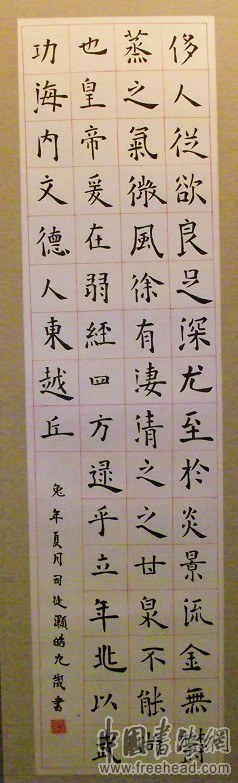 侈人從欲良足深尤至於炎景流金無鬱
蒸之氣微風徐有淒清之之甘泉不能尚
也皇帝爰在弱經四方逮乎立年兆以武
功海內文德人東越丘
兔年夏月司徒灝皓九歲書
中国書法網
www.freehead.com